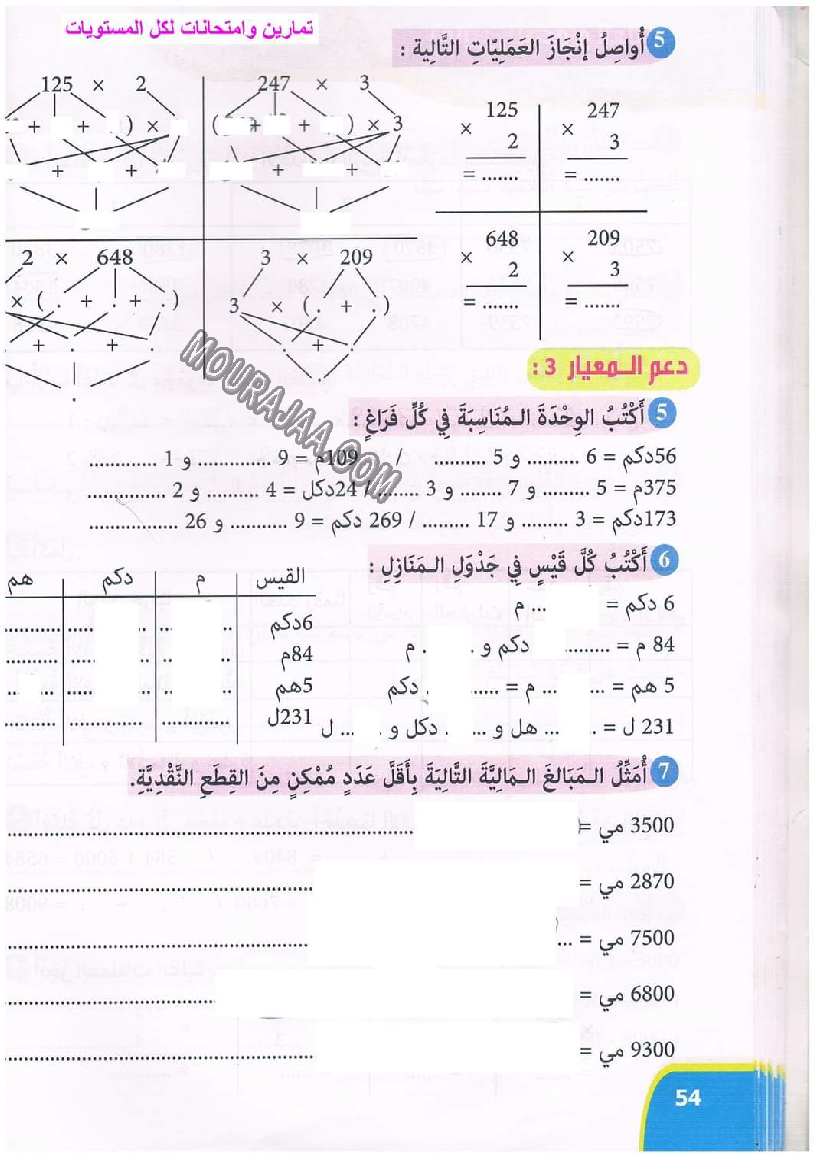 تمارين وامتحانات لكل المستويات
5 أُواصِلُ إنْجَازَ العَمَلِيّاتِ التَّالِيةِ :
125 × 2
247 × 3
125
247
× 2
× 3
= .......
= .......
+ + ) ×
( + + ) × 3
+ +
+ +
2 × 648
3 × 209
648
209
× 2
× 3
= .......
= .......
× ( . + . + . )
3 × ( . + . )
. + . + .
. + .
دعم الـمعيار 3 :
MOURAJAA.COM
5 أَكْتُبُ الوِحْدَةَ الـمُنَاسِبَةَ فِي كُلِّ فَرَاغٍ :
56دكم = 6 ......... و 5 ......... / 109م = 9 ............. و 1 ............
375م = 5 ......... و 7 ........ و 3 ......../ 24دكل = 4 ......... و 2 ..............
173دكم = 3 ......... و 17 ......... / 269 دكم = 9 .......... و 26 ................
6 أَكْتُبُ كُلَّ قَيْسٍ فِي جَدْوَلِ الـمَنَازِلِ :
القيس م دكم هم
6دكم
84م
5هم
231ل
6 دكم = ... م
84 م = .......... دكم و . . م
5 هم = ... ... م = ....... . دكم
231 ل = . ... هل و ... . دكل و . ... ل
7 أُمَثِّلُ الـمَبَالِغَ الـمَالِيَّةَ التَّالِيَةَ بِأَقَلَّ عَدَدٍ مُمْكِنٍ مِنَ القِطَعِ النَّقْدِيَّةِ.
3500 مي =
2870 مي =
7500 مي = ...
6800 مي =
9300 مي =
54